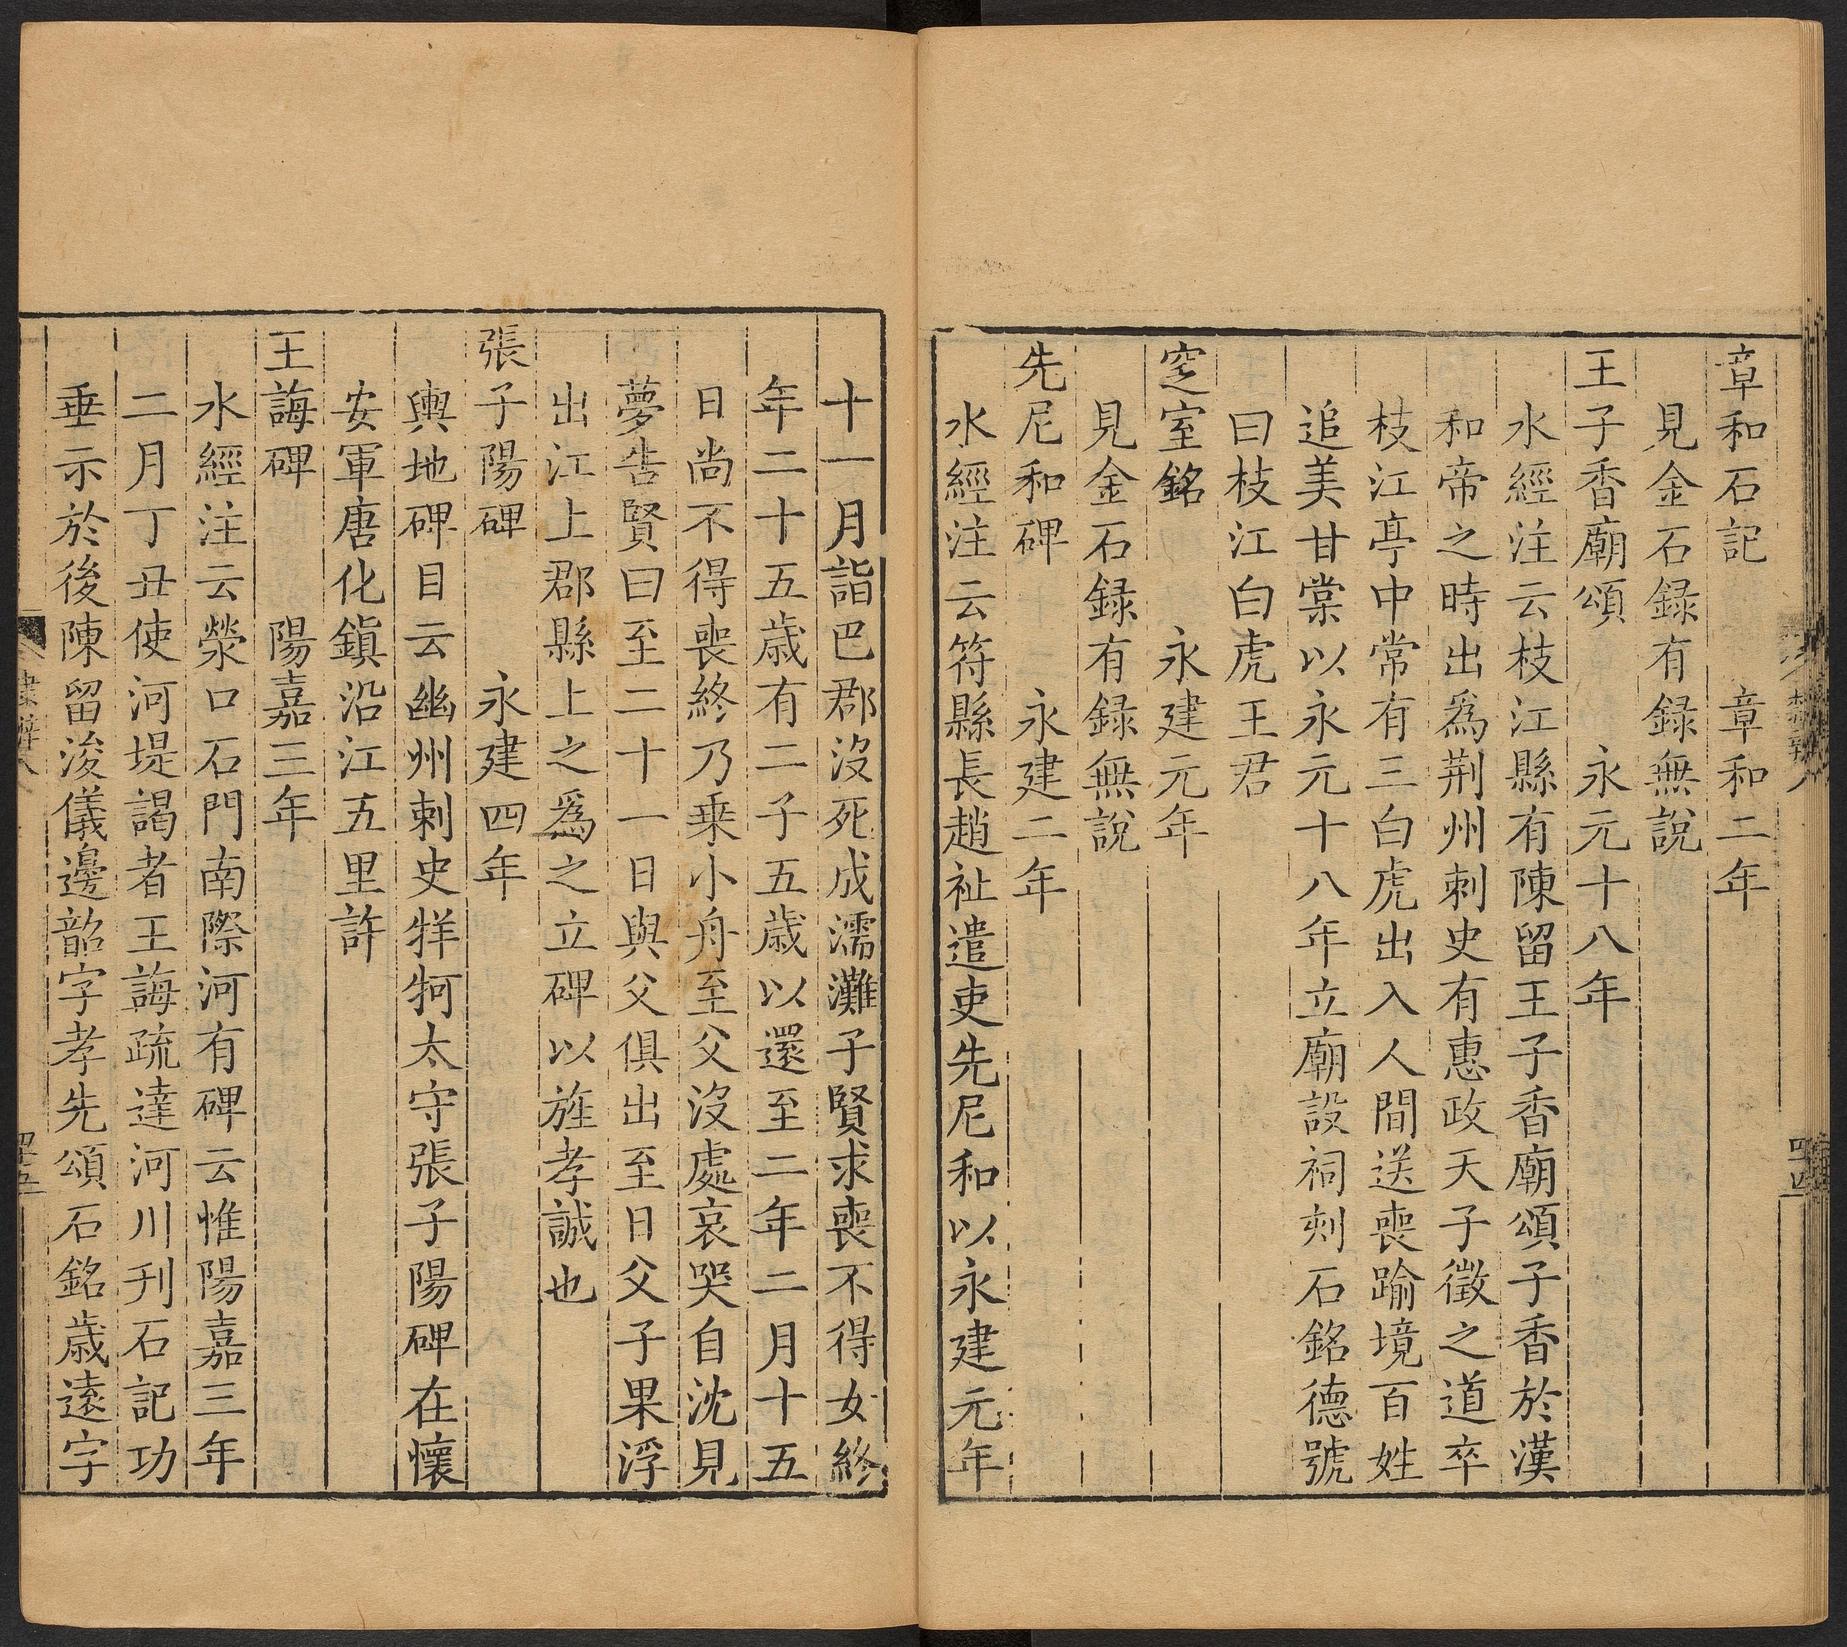 章和石記　章和二年
見金石録有録無說
王子香廟頌　永元十八年
水經注云枝江縣有陳留王子香廟頌子香於漢
和帝之時出爲荆州刺史有惠政天子徵之道卒
枝江亭中常有三白虎出入人間送喪踰境百姓
追美甘棠以永元十八年立廟設祠刻石銘德號
曰枝江白虎王君
窆室銘　永建元年
見金石録有録無說
先尼和碑　永建二年
水經注云符縣長趙祉遣吏先尼和以永建元年
十一月詣巴郡沒死成濡灘子賢求喪不得女終
年二十五歲有二子五歲以還至二年二月十五
日尚不得喪終乃乗小舟至父沒處哀哭自沈見
夢告賢曰至二十一日與父俱出至日父子果浮
出江上郡縣上之爲之立碑以旌孝誠也
張子陽碑　永建四年
輿地碑目云幽州刺史牂牁太守張子陽碑在懷
安軍唐化鎮沿江五里許
王誨碑　陽嘉三年
水經注云滎口石門南際河有碑云惟陽嘉三年
二月丁丑使河堤謁者王誨疏達河川刊石記功
垂示於後陳留浚儀邊韶字孝先頌石銘歲遠字